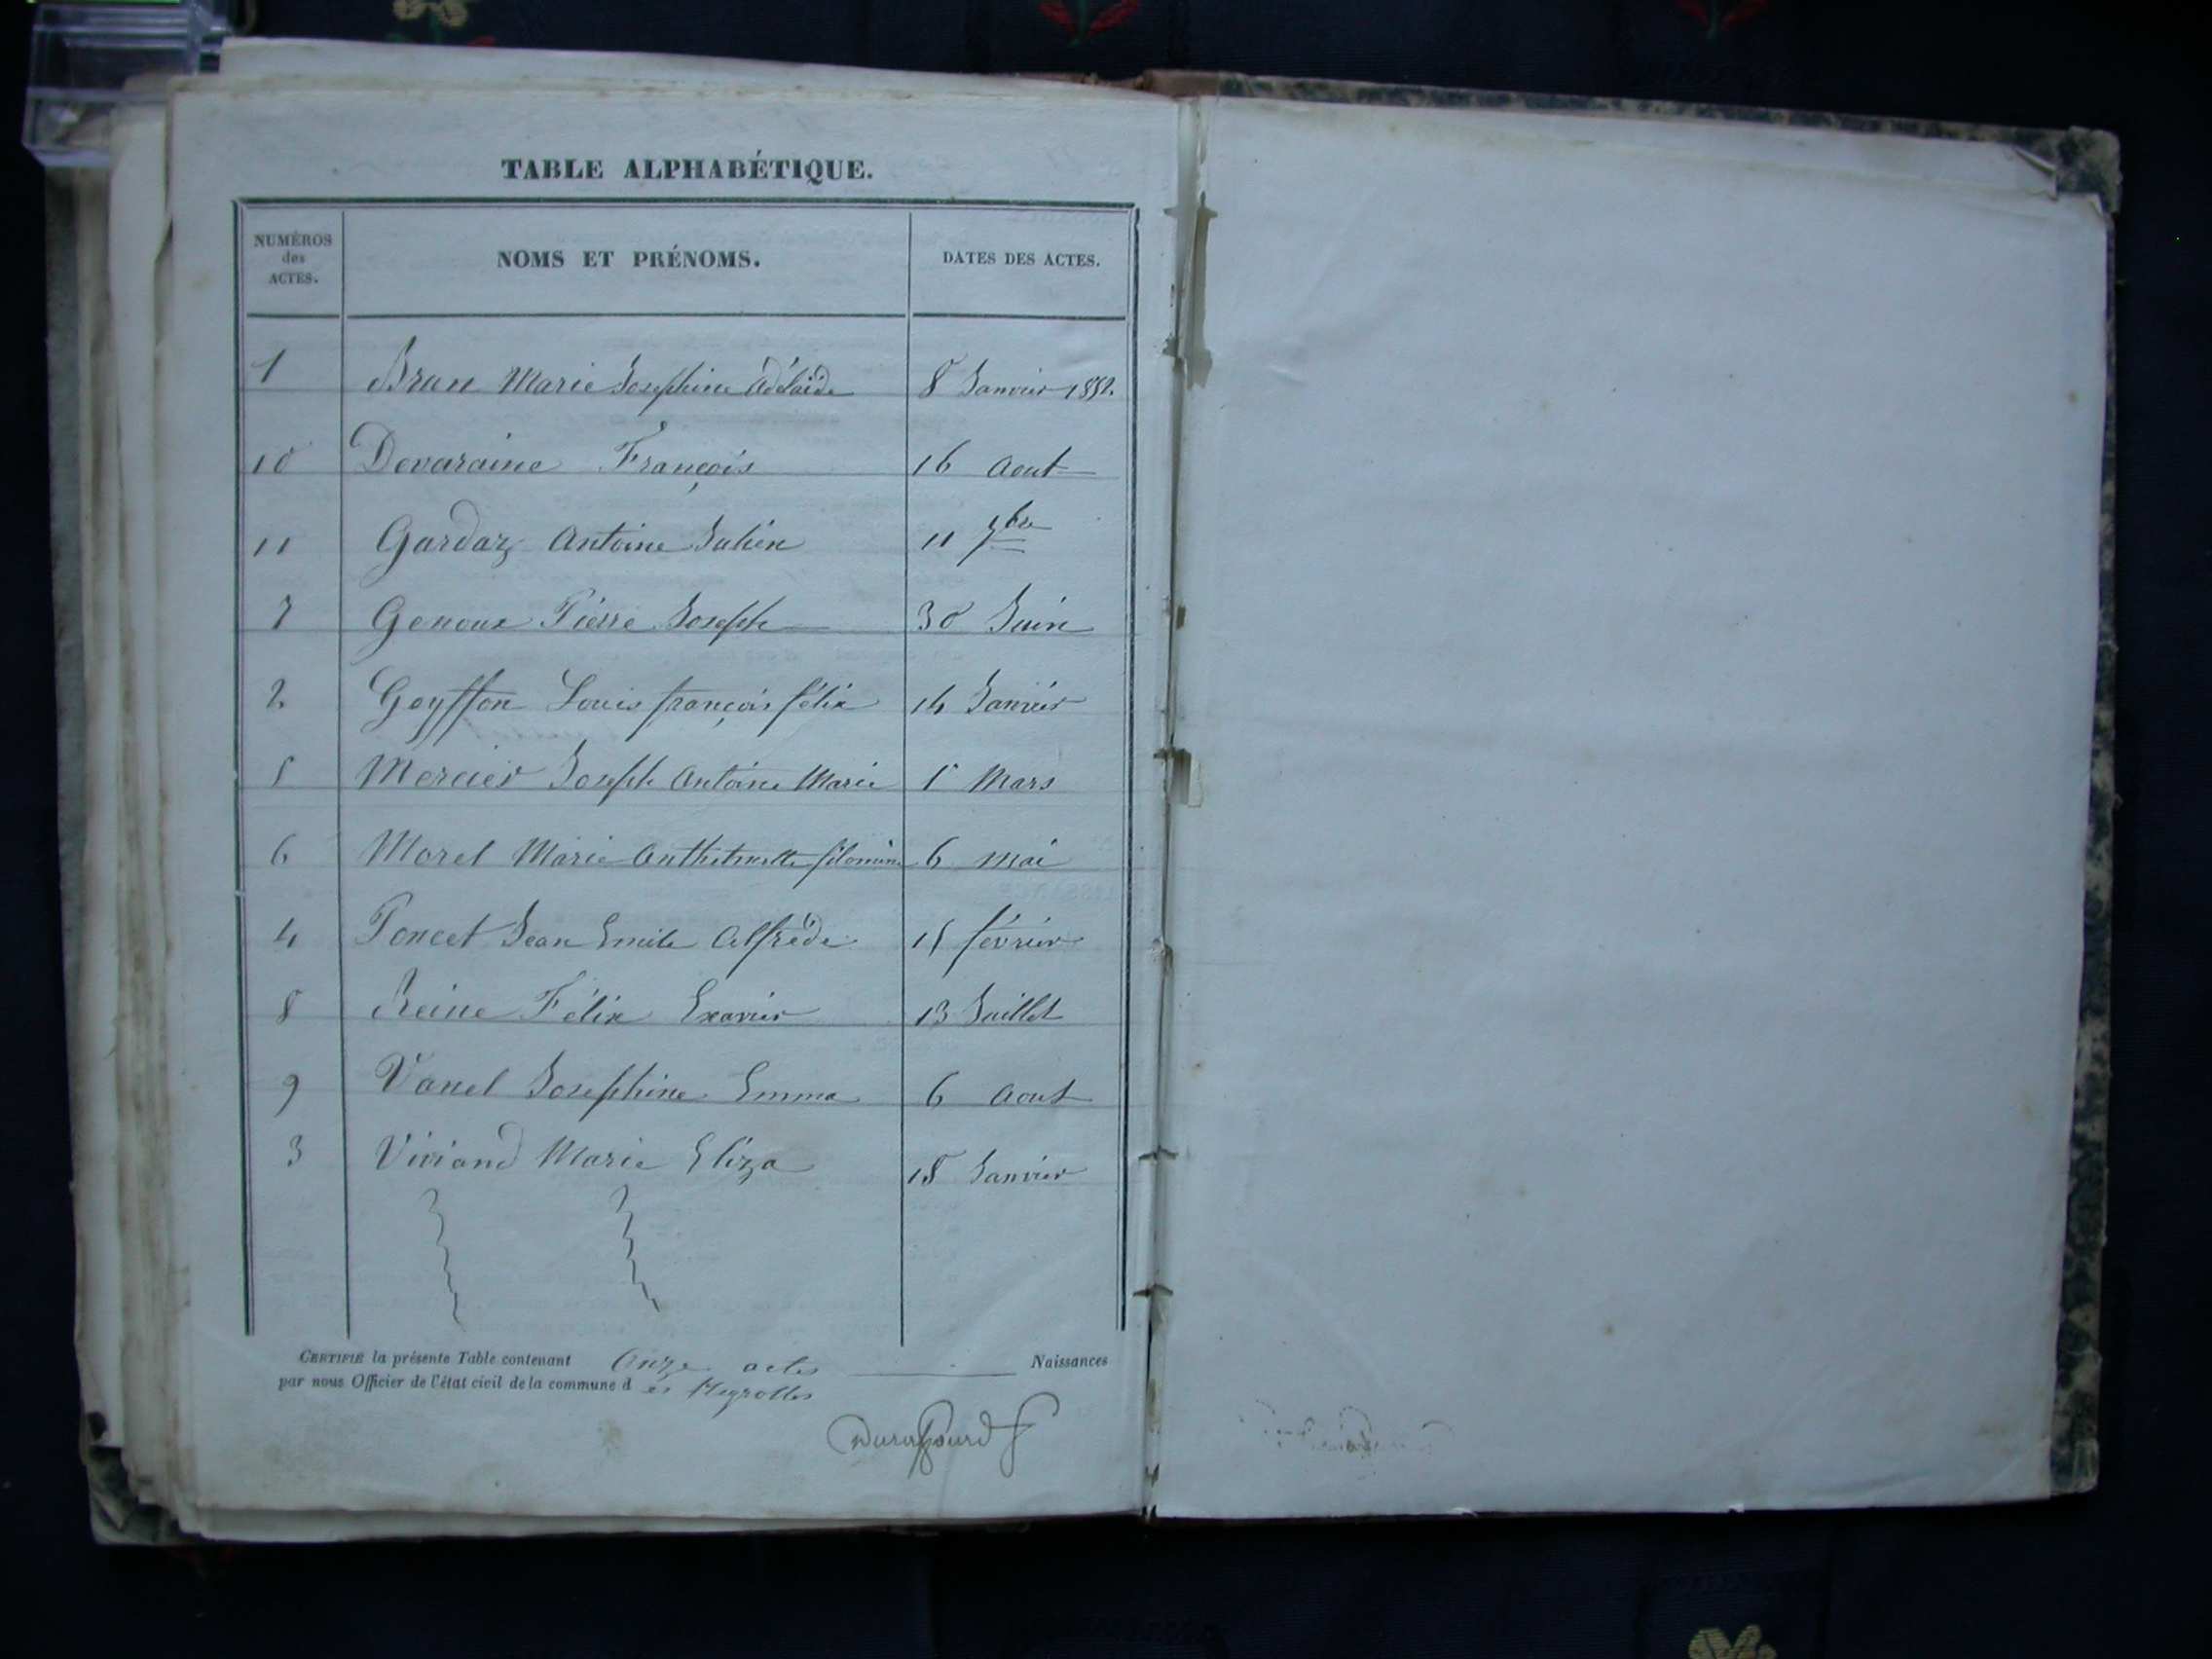 TABLE ALPHABÉTIQUE.
NUMÉROS des ACTES. NOMS ET PRÉNOMS. DATES DES ACTES.
1 Brun Marie Josephine Adélaïde 8 Janvier 1852.
10 Devaraine François 16 Aout
11 Gardaz Antoine Julien 11 7bre
7 Genoux Pierre Joseph 30 Juin
2 Goyffon Louis françois félix 14 Janvier
5 Mercier Joseph Antoine Marie 5 Mars
6 Morel Marie filomine 6 mai
4 Poncet Jean Emile Alfrède 15 février
8 Reine Félix Exavier 13 Juillet
9 Vanel Josephine Emma 6 Aout
3 Viviand Marie Eliza 18 Janvier
CERTIFIE la présente Table contenant Onze actes Naissances
par nous Officier de l'état civil de la commune d es Peyrolles